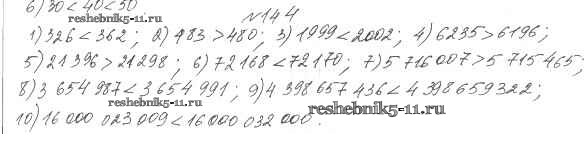 6) 30 < 40 < 50.
reshebnik5-11.ru
№144
1) 326 < 362; 2) 483 > 480; 3) 1999 < 2002; 4) 6235 > 6196;
5) 21 396 > 21 298; 6) 72168 < 72170; 7) 5 716 007 > 5 715 465;
8) 3 654 987 < 3 654 991; 9) 4 398 657 436 < 4 398 659 322;
reshebnik5-11.ru
reshebnik5-11.ru
10) 16 000 023 009 < 16 000 032 000.